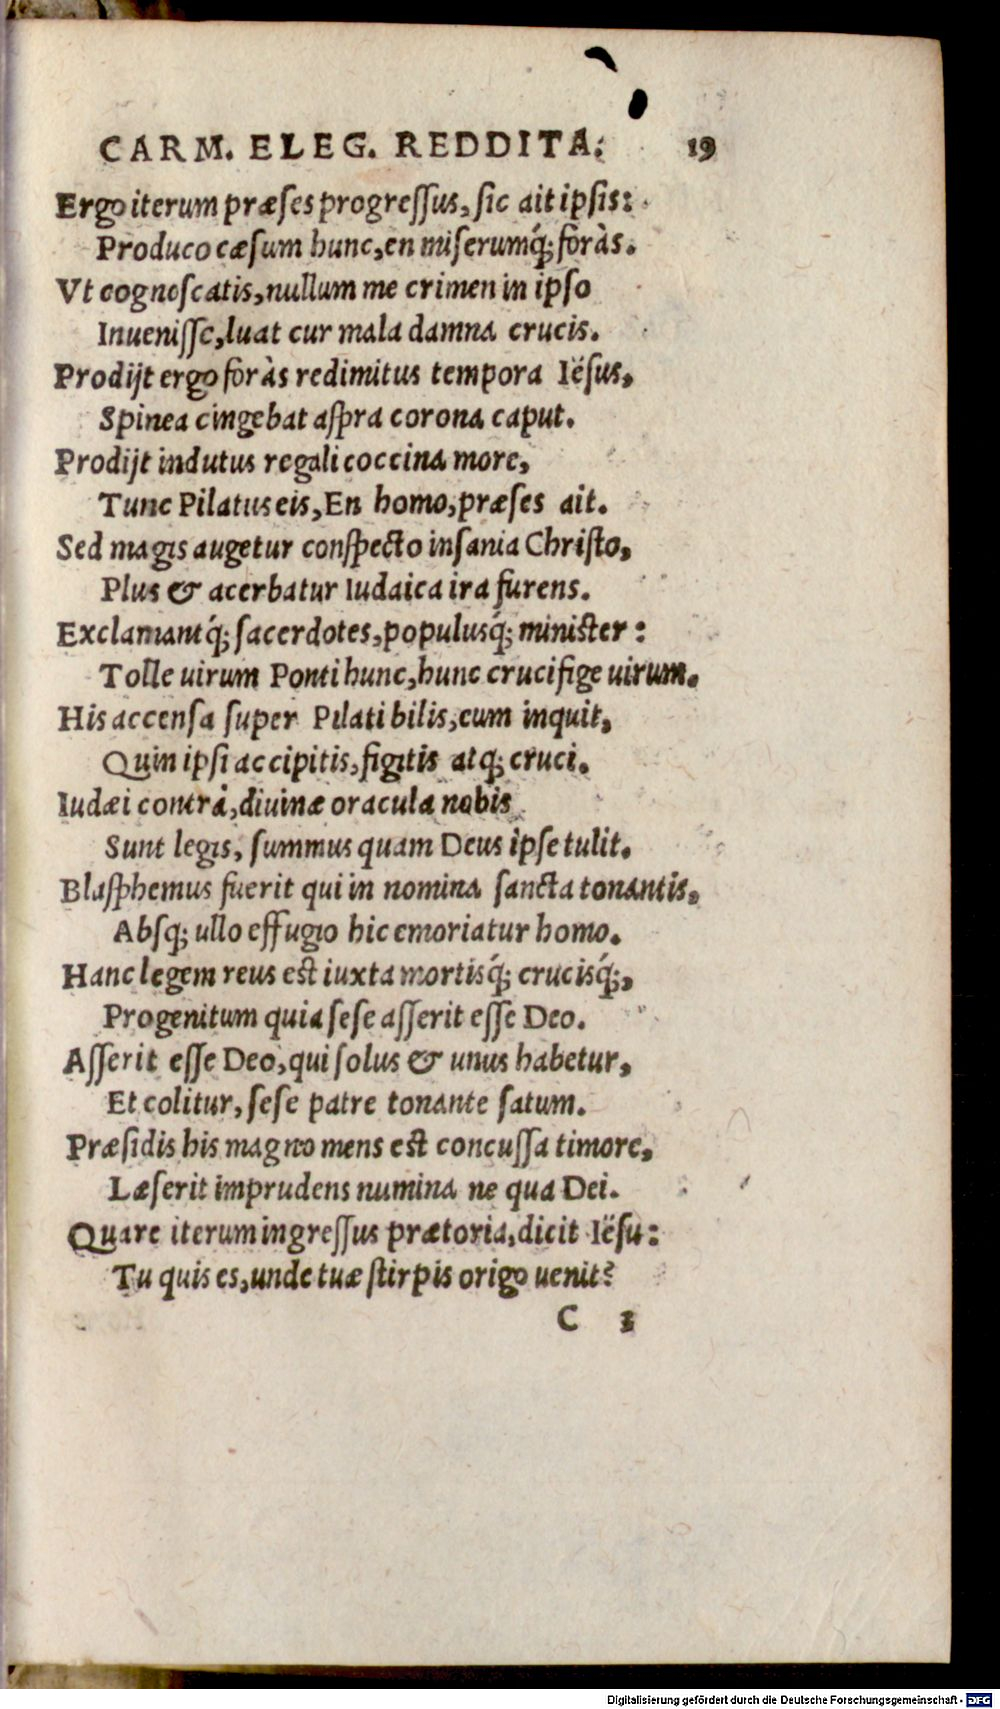 CARM. ELEG. REDDITA. 19
Ergo iterum præses progressus, sic ait ipsis:
Produco cæsum hunc, en miserumq́; foràs.
Vt cognoscatis, nullum me crimen in ipso
Inuenisse, luat cur mala damna crucis.
Prodijt ergo foràs redimitus tempora Iësus,
Spinea cingebat aspra corona caput.
Prodijt indutus regali coccina more,
Tunc Pilatus eis, En homo, præses ait.
Sed magis augetur conspecto insania Christo,
Plus & acerbatur Iudaica ira furens.
Exclamantq́; sacerdotes, populusq́; minister:
Tolle uirum Ponti hunc, hunc crucifige uirum.
His accensa super Pilati bilis, eum inquit,
Quin ipsi accipitis, figitis atq; cruci.
Iudæi contrà, diuinæ oracula nobis
Sunt legis, summus quam Deus ipse tulit.
Blasphemus fuerit qui in nomina sancta tonantis,
Absq; ullo effugio hic emoriatur homo.
Hanc legem reus est iuxta mortisq́; crucisq́;,
Progenitum quia sese asserit esse Deo.
Asserit esse Deo, qui solus & unus habetur,
Et colitur, sese patre tonante satum.
Præsidis his magno mens est concussa timore,
Læserit imprudens numina ne qua Dei.
Quare iterum ingressus prætoria, dicit Iësu:
Tu quis es, unde tuæ stirpis origo uenit?
C 3
Digitalisierung gefördert durch die Deutsche Forschungsgemeinschaft - DFG